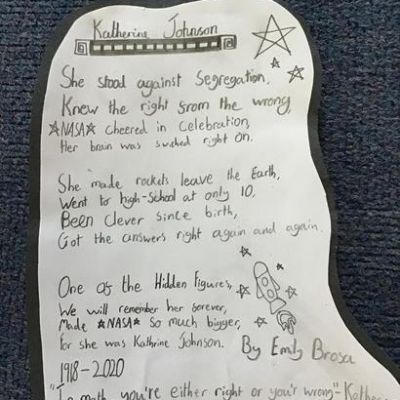 Katherine Johnson
She stood against Segregation,
Knew the right from the wrong,
★NASA★ cheered in Celebration,
Her brain was switched right on.
She made rockets leave the Earth,
Went to high-school at only 10,
Been Clever since birth,
Got the answers right again and again.
One of the Hidden Figures,
We will remember her forever,
Made ★NASA★ so much bigger,
For she was Kathrine Johnson.
By Emily Brosa
1918-2020
"In math, you're either right or you'r wrong" - Kathe